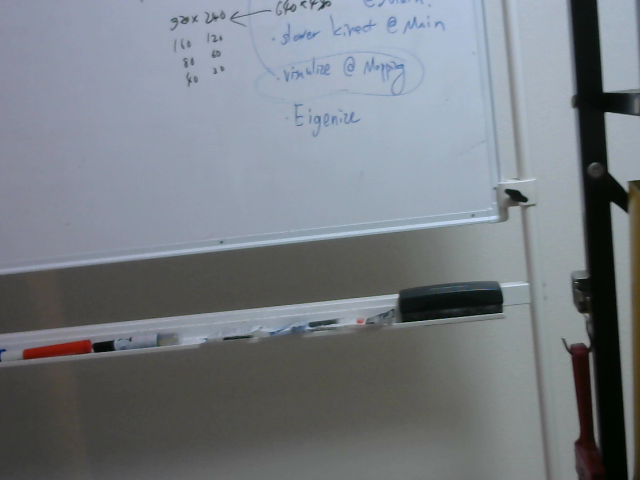 320 x 240 ← 640 x 480
160 120
80 60
40 30
· slower kinect @ Main
· visualize @ Mapping
· Eigenize